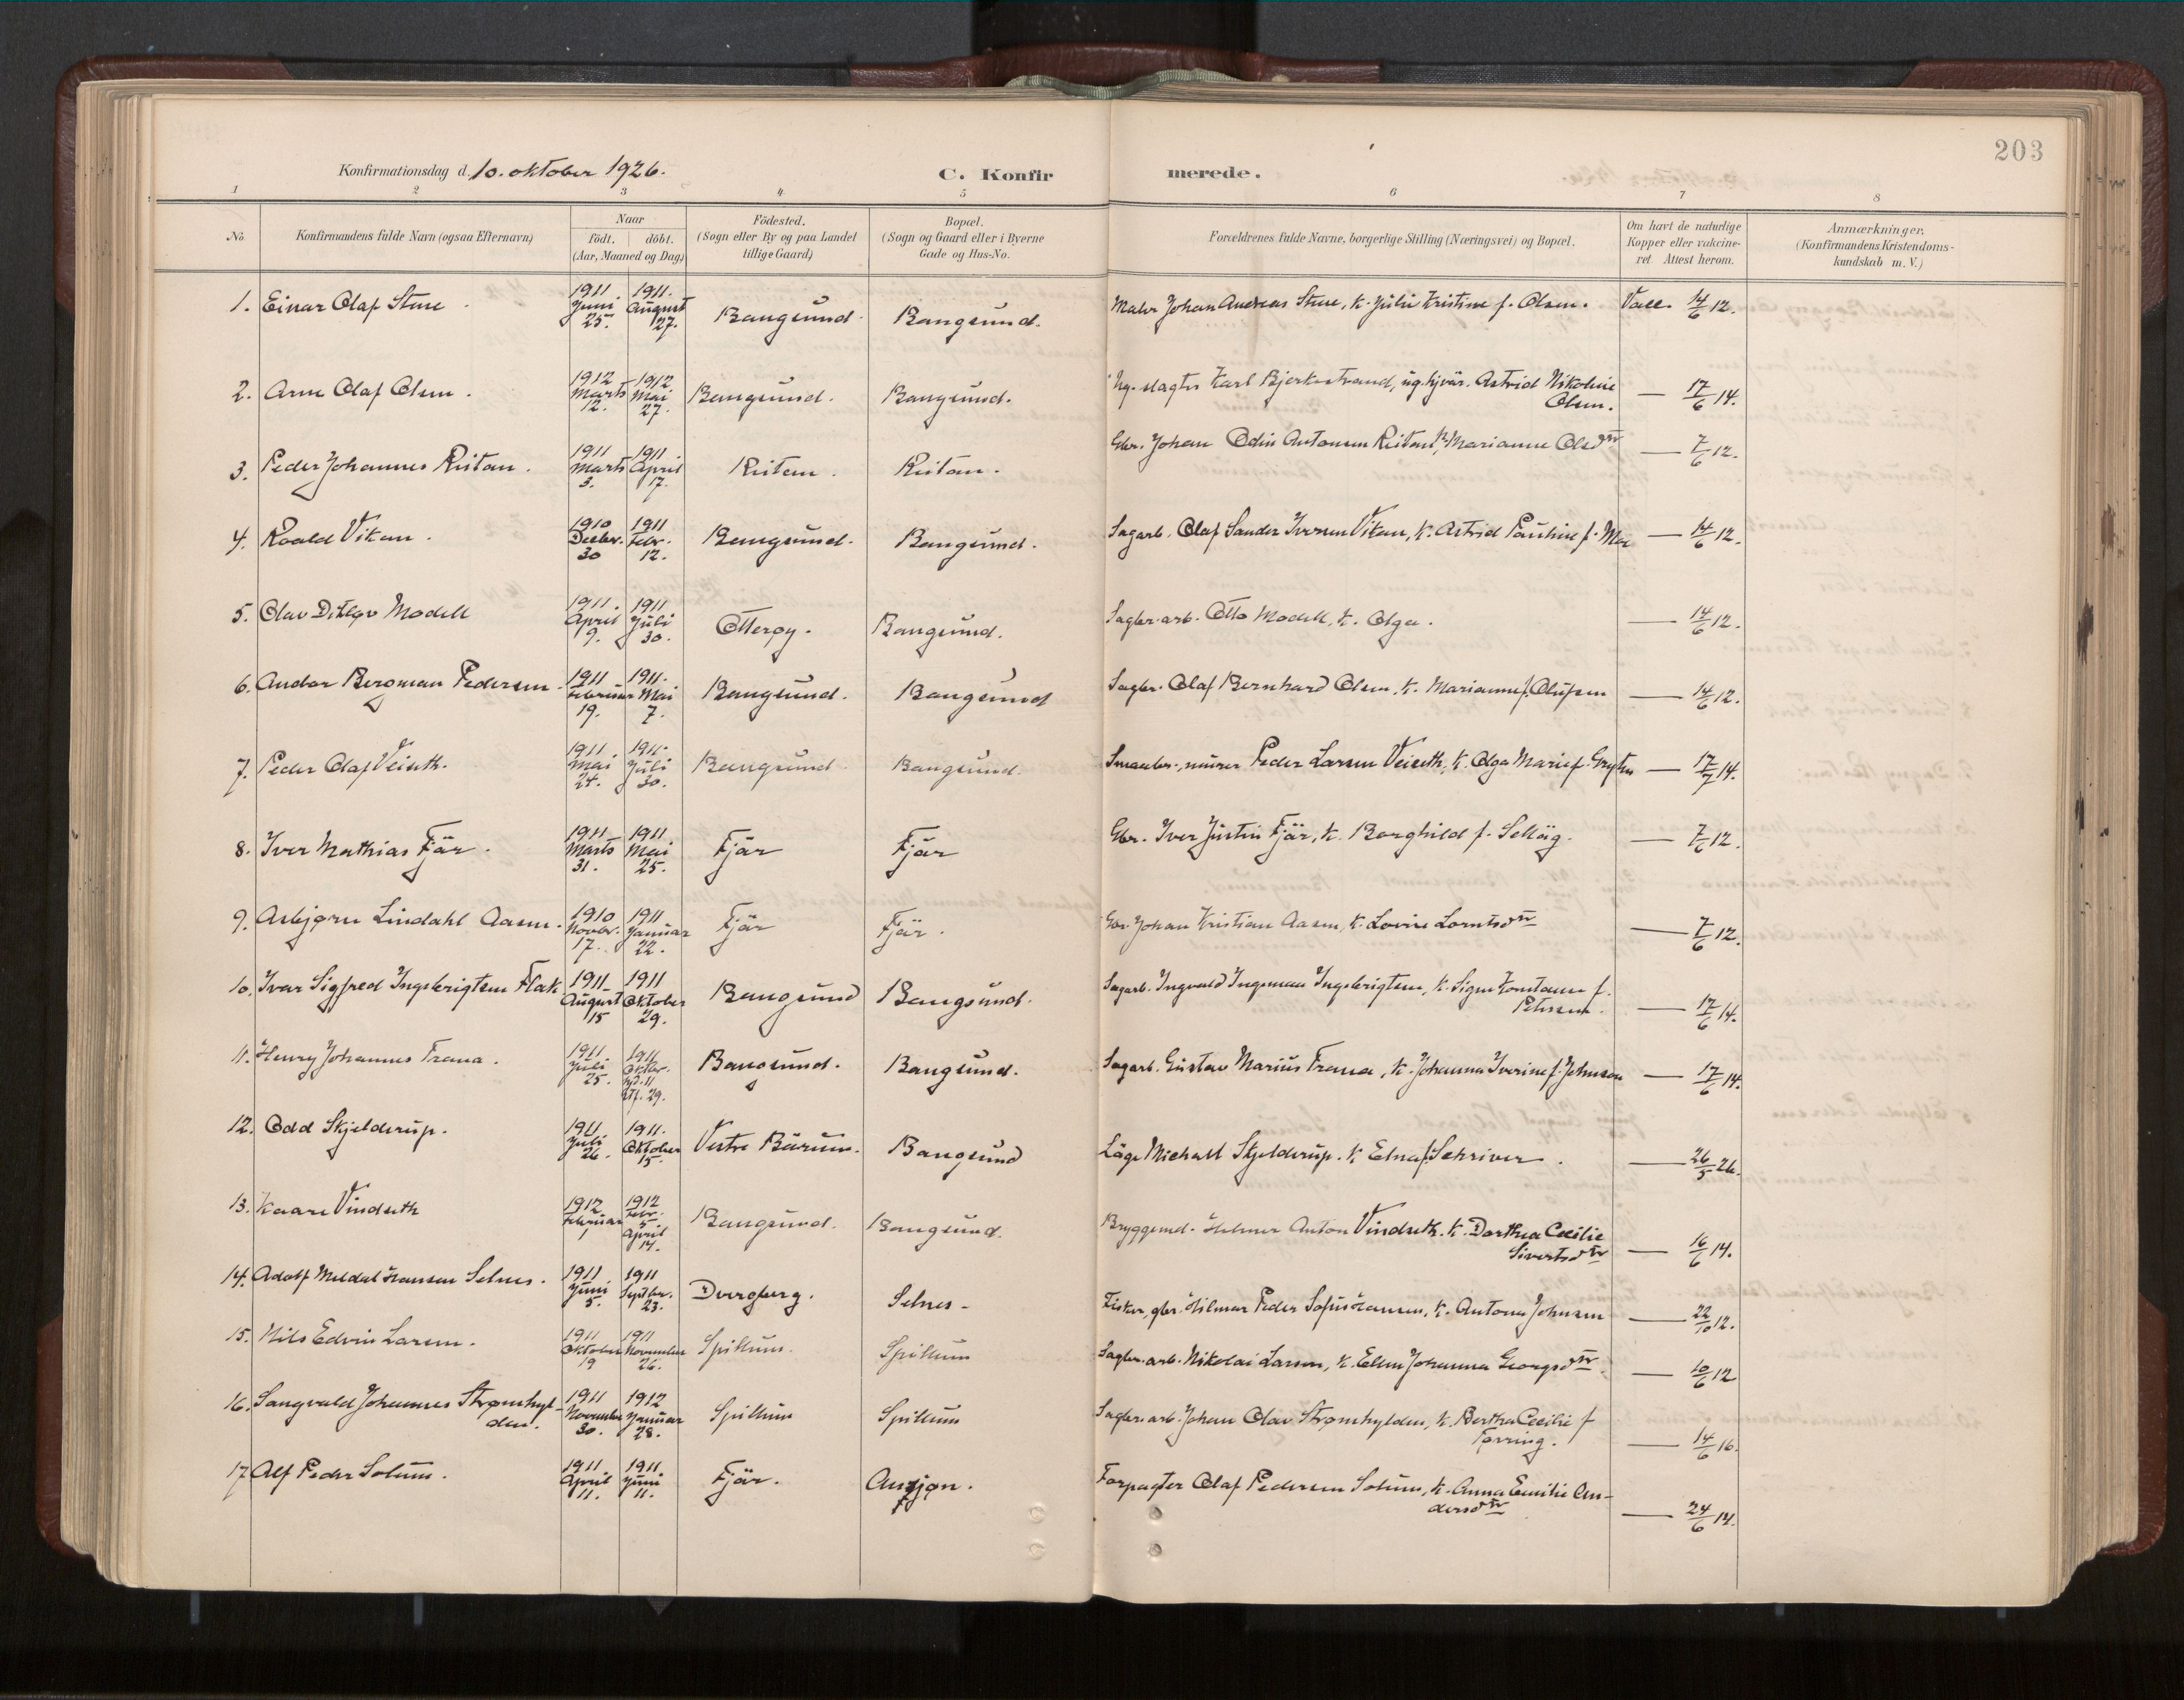 203
Konfirmationsdag d. 10. oktober 1926.
C. Konfirmerede.
1 2 3 4 5 6 7 8
No. Konfirmandens fulde Navn (ogsaa Efternavn) Naar födt. döbt. (Aar, Maaned og Dag) Födested. (Sogn eller By og paa Landet tillige Gaard) Bopæl. (Sogn og Gaard eller i Byerne Gade og Hus-No. Forældrenes fulde Navne, borgerlige Stilling (Næringsvei) og Bopæl. Om havt de naturlige Kopper eller vakcineret Attest herom. Anmærkninger. (Konfirmandens Kristendomskundskab m. V.)
1. Einar Olaf Sture. 1911 Juni 25. 1911. August 27. Bangsund. Bangsund. Maler Johan Andreas Sture, k. Julie Kristine f. Olsen. Vacc. 14/6 12.
2. Arne Olaf Olsen. 1912 Marts 12. 1912 Mai 27. Bangsund. Bangsund. Ug. slagter Karl Bjerkestrand, ug. Astrid Nikoline Olsen. — 17/6 14.
3. Peder Johannes Reitan. 1911 Marts 3. 1911 April 17. Reitan. Reitan. Gbr. Johan Odin Antonsen Reitan, k. Marianne Olsdtr — 7/6 12.
4. Roald Vikan. 1910 Decbr. 30 1911 Febr. 12. Bangsund. Bangsund. Sagarb. Olaf Sander Iversen Vikan, k. Astrid Pauline f. Moe — 14/6 12.
5. Olav Ditlev Modell 1911. April 9. 1911 Juli 30. Otterøy. Bangsund. Sagbr. arb. Otto Modell, k. Olga. — 14/6 12.
6. Andor Bergman Pedersen 1911 Februar 19. 1911. Mai 7. Bangsund. Bangsund Sagbr. Olaf Bernhard Olsen, k. Marianne f. Olufsen — 14/6 12.
7. Peder Olaf Veiseth. 1911 Mai 24. 1911. Juli 30. Bangsund. Bangsund. Smaabr., murer Peder Larsen Veiseth, k. Olga Marie f. Gryten — 17/7 14.
8. Iver Mathias Fjär. 1911 Marts 31. 1911 Mai 25. Fjär Fjär Gbr. Iver Justin Fjär, k. Borghild f. Selläg. — 7/6 12.
9. Asbjørn Lindahl Aasen. 1910 Novbr. 17. 1911 Januar 22. Fjär Fjär. Gbr. Johan Kristian Aasen, k. Lovise Lorntsdtr — 7/6 12.
10. Ivar Sigfred Ingebrigtsen Flak 1911 August 15 1911 Oktober 29. Bangsund Bangsund. Sagarb. Ingvald Ingeman Ingebrigtsen, k. Signe Konstanse f. Petersen. — 17/6 14.
11. Henry Johannes Frana. 1911 Juli 25. 1911 Oktbr. 29. Bangsund. Bangsund. Sagarb. Gustav Marius Frana, k. Johanna Iverine f. Johnsen — 17/6 14.
12. Odd Skjelderup. 1911 Juli 26. 1911. Oktober 15. Vestre Bärum. Bangsund Läge Michall Skjelderup. k. Edna f. Schriver. — 26/5 26.
13. Kaare Vindseth 1912 Februar 1 1912 Febr. 5. April 14. Bangsund. Bangsund. Bryggemd. Helmer Anton Vindseth. k. Dorthea Cecilie Sivertsdtr — 16/6 14.
14. Adolf Meldal Hansen Selnes. 1911 Juni 5. 1911 Septbr. 23. Dverberg. Selnes. Fisker, gbr. Hilmar Peder Sofus Hansen, k. Antona Johnsen — 22/10 12.
15. Nils Edvin Larsen. 1911 Oktober 19 1911 November 26. Spillum. Spillum Sagbr. arb. Nikolai Larsen, k. Ellen Johanna Georgsdtr. — 10/6 12
16. Sangvald Johannes Strømhylden. 1911 November 30. 1912 Januar 28. Spillum Spillum Sagbr. arb. Johan Olav Strømhylden, k. Bertha Cecilie f Tørring. — 14/6 16.
17 Alf Peder Solum. 1911 April 11. 1911 Juni 11. Fjär. Ausjøn. Forpagter Olaf Pedersen Solum, k. Anna Emilie Andersdtr — 24/6 14.